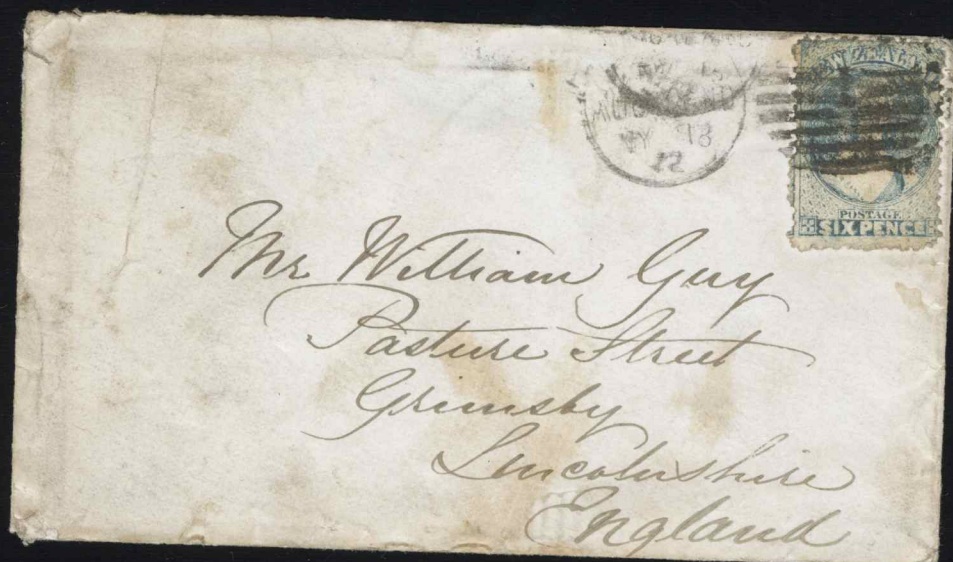 MY 18
72
POSTAGE
SIX PENCE
Mr William Guy
Pasture Street
Grimsby
Lincolnshire
England